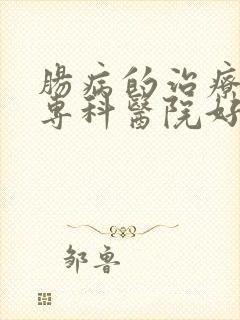 腸病的治療
專科醫院好
邹鲁